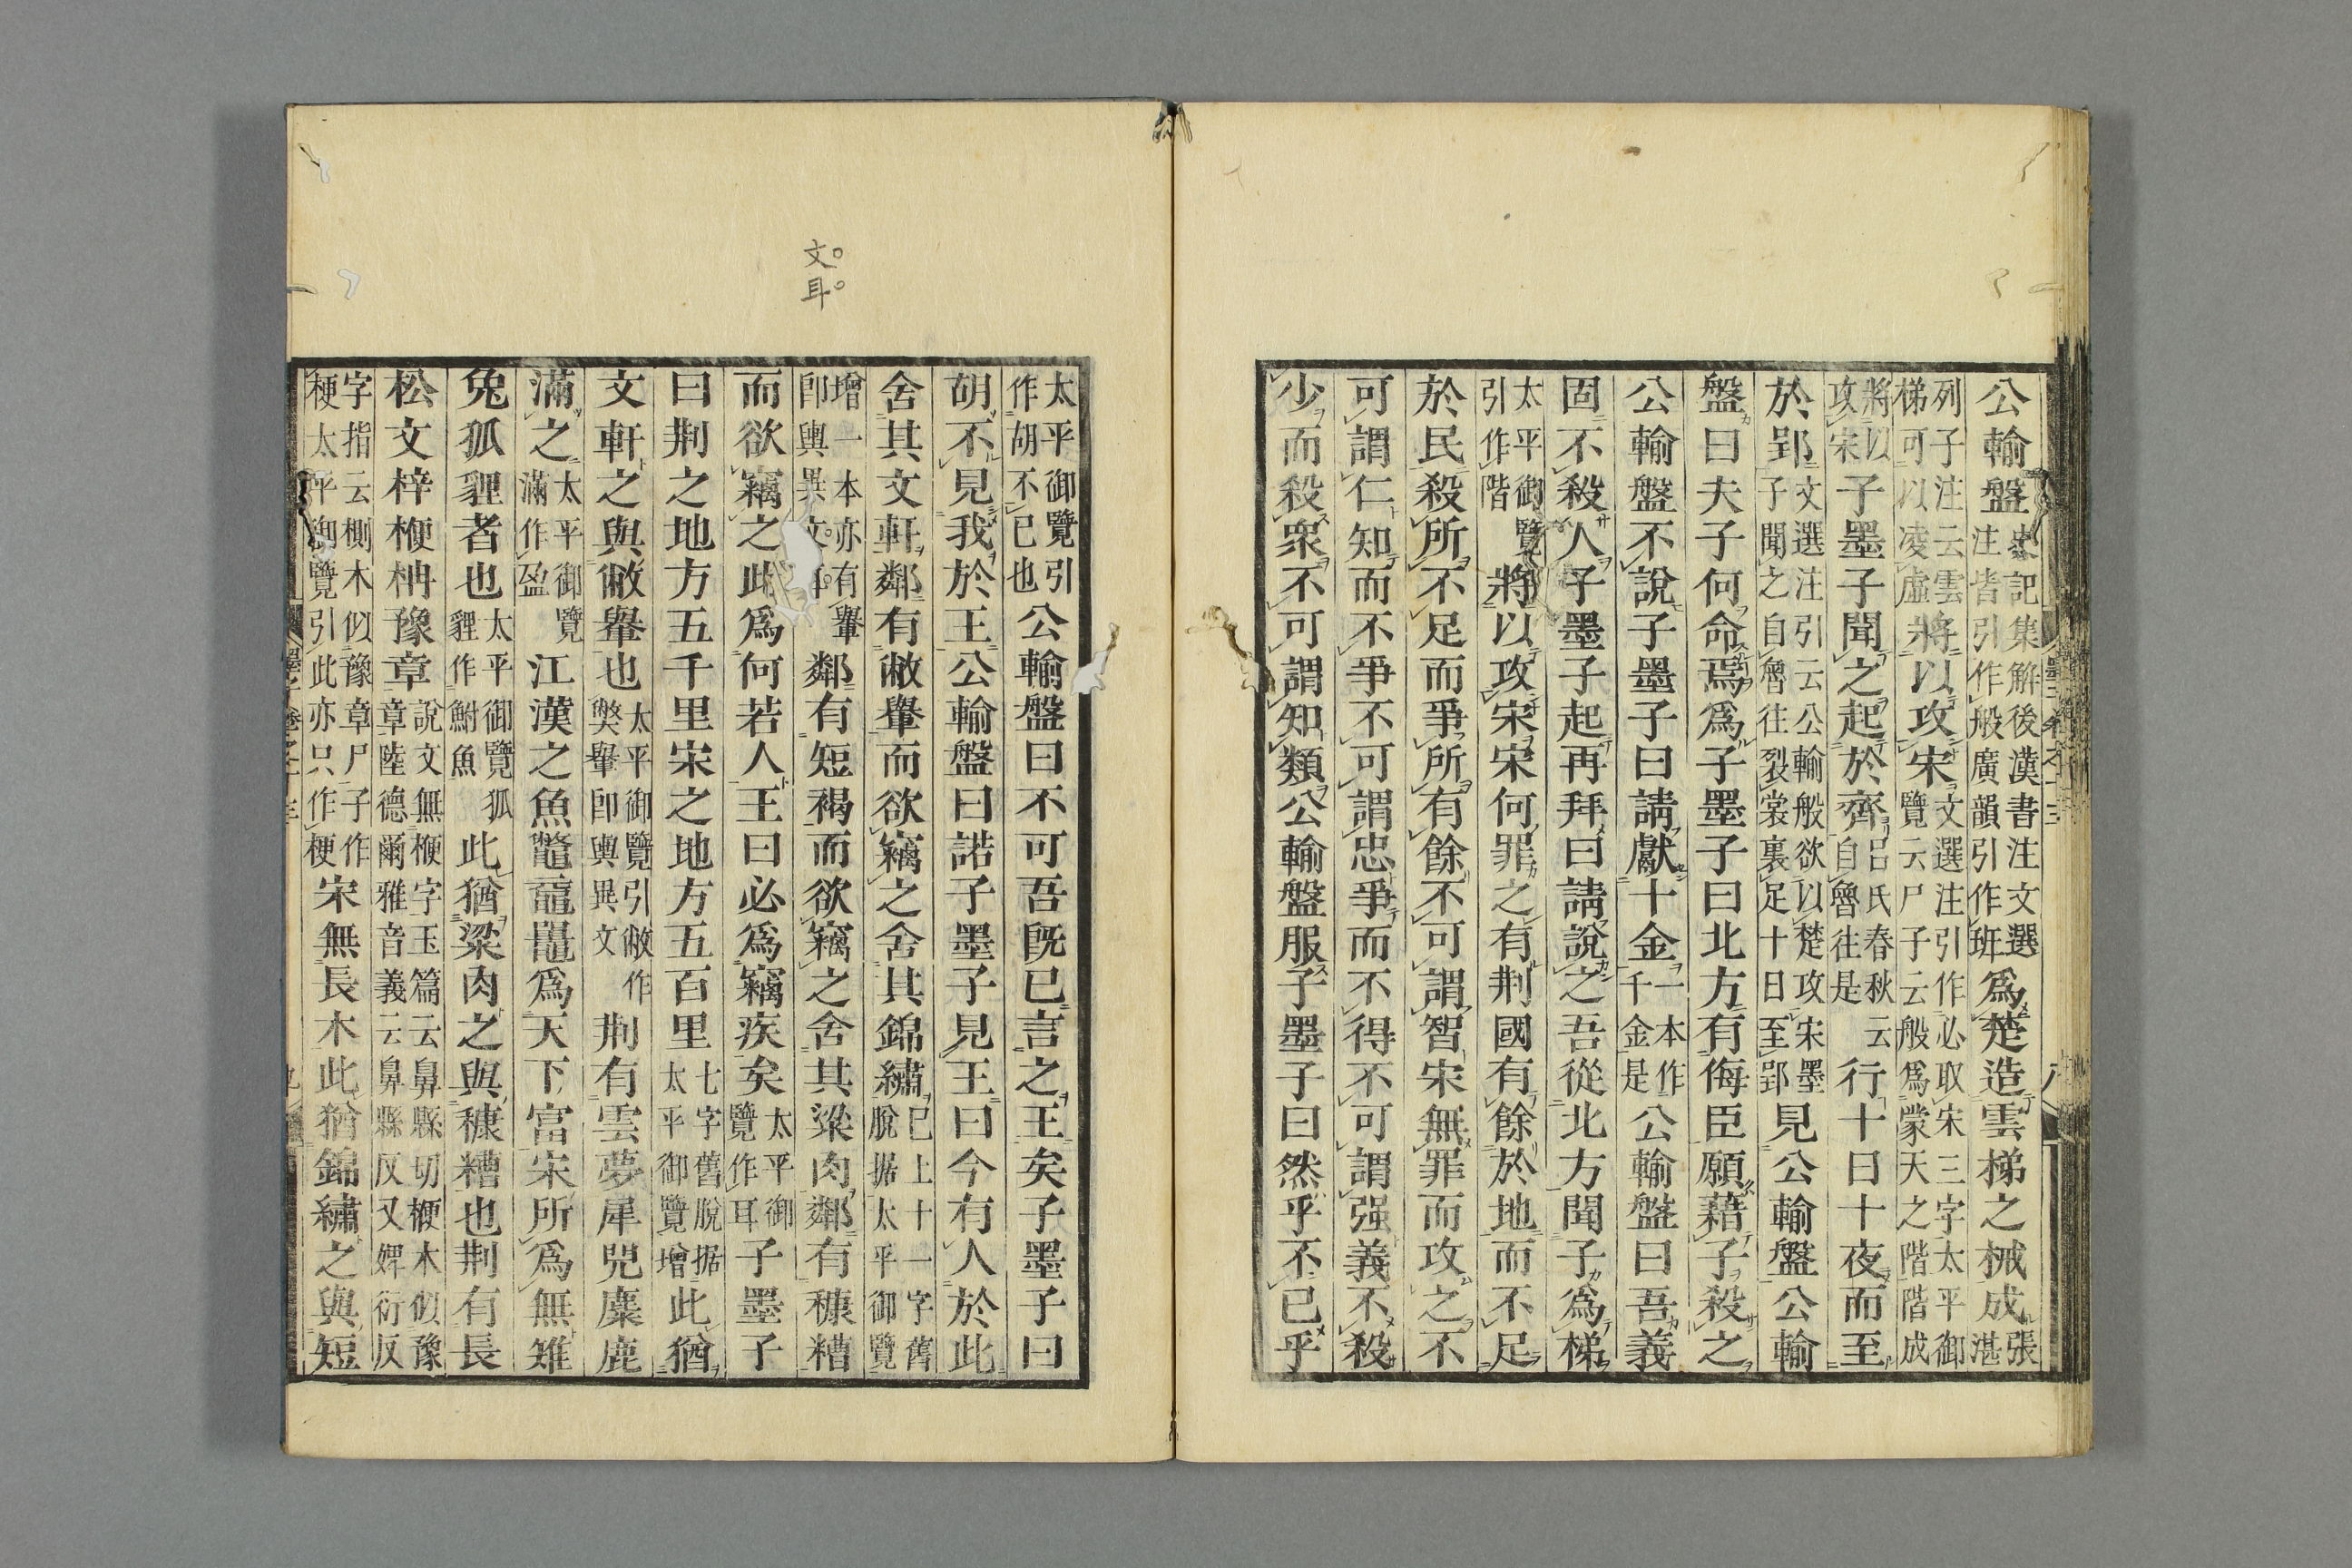 公輸盤史記集解後漢書注文選注皆引作般廣韻引作班爲楚造雲梯之械成張湛
列子注云雲梯可以凌虛將以攻宋文選注引作必取宋三字太平御覽云尸子云般爲蒙天之階階成
將以攻宋子墨子聞之起於齊呂氏春秋云自魯往是行十日十夜而至
於郢文選注引云公輸般欲以楚攻宋墨子聞之自魯往裂裳裹足十日至郢見公輸盤公輸
盤曰夫子何命焉爲子墨子曰北方有侮臣願藉子殺之
公輸盤不說子墨子曰請獻十金一本作千金是公輸盤曰吾義
固不殺人子墨子起再拜曰請說之吾從北方聞子爲梯
太平御覽引作階將以攻宋宋何罪之有荆國有餘於地而不足
於民殺所不足而爭所有餘不可謂智宋無罪而攻之不
可謂仁知而不爭不可謂忠爭而不得不可謂强義不殺
少而殺衆不可謂知類公輸盤服子墨子曰然乎不已乎
太平御覽引作胡不已也公輸盤曰不可吾旣已言之王矣子墨子曰
胡不見我於王公輸盤曰諾子墨子見王曰今有人於此
舍其文軒鄰有敝轝而欲竊之舍其錦繡已上十一字舊脫据太平御覽
文耳
增一本亦有轝卽輿異文耳鄰有短褐而欲竊之舍其粱肉鄰有穅糟
而欲竊之此爲何若人王曰必爲竊疾矣太平御覽作耳子墨子
曰荆之地方五千里宋之地方五百里七字舊脫据太平御覽增此猶
文軒之與敝轝也太平御覽引敝作弊轝卽輿異文荆有雲夢犀兕麋鹿
滿之太平御覽滿作盈江漢之魚鼈黿鼉爲天下富宋所爲無雉
兔狐貍者也太平御覽狐貍作鮒魚此猶粱肉之與穅糟也荆有長
松文梓楩枏豫章說文無楩字玉篇云鼻縣切楩木似豫章陸德爾雅音義云鼻縣反又婢衍反
字指云楩木似豫章尸子作梗太平御覽引此亦只作梗宋無長木此猶錦繡之與短